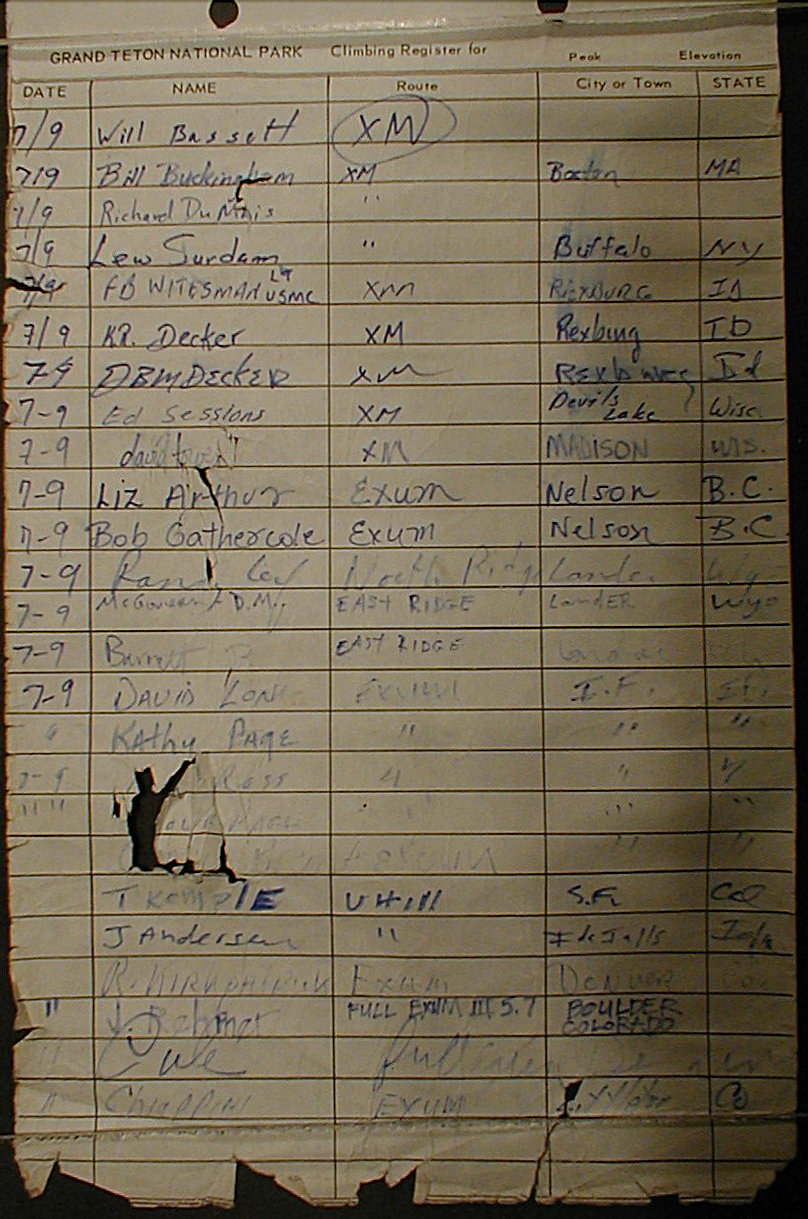 GRAND TETON NATIONAL PARK Climbing Register for Peak Elevation
DATE NAME Route City or Town STATE
7/9 Will Bassett XM
7/9 Bill Buckingham XM Boston MA
7/9 Richard DuMais "
7/9 Lew Surdam " Buffalo NY
7/9 FB WITESMAN USMC XM REXBURG ID
7/9 KR. Decker XM Rexburg ID
7-9 DBMDECKER XM Id
7-9 Ed Sessions XM Devil's Lake Wisc.
7-9 david XM MADISON WIS.
7-9 Liz Arthur Exum Nelson B.C.
7-9 Bob Gathercole Exum Nelson B.C.
7-9 North Ridge Lander Wyo
7-9 D.M. EAST RIDGE LANDER Wyo
7-9 Barrett EAST RIDGE
7-9 DAVID LONG EXUM I.F. ID.
" Kathy PAGE " " "
7-9 Ross " " "
" "
" "
T KEMPLE S.F. Cal
J Andersen "
R. KIRKPATRICK Exum DENVER
" FULL EXUM III 5.7 BOULDER COLORADO
"
" EXUM Co